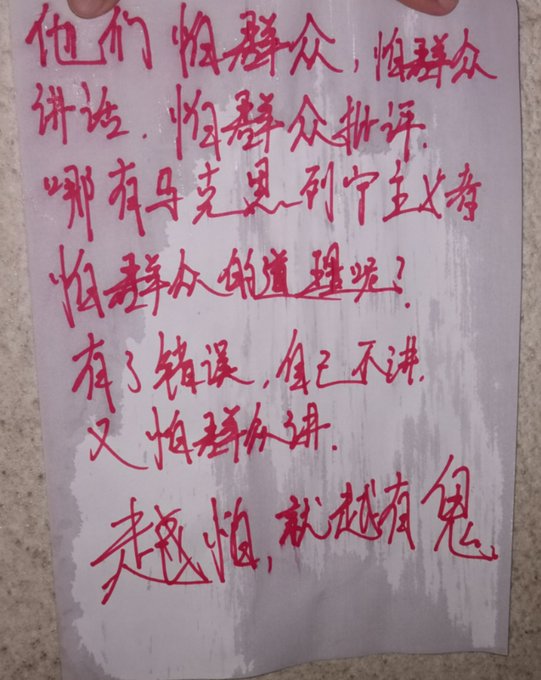 他们怕群众，怕群众
讲话，怕群众批评。
哪有马克思列宁主义者
怕群众的道理呢？
有了错误，自己不讲，
又怕群众讲。
越怕，就越有鬼。